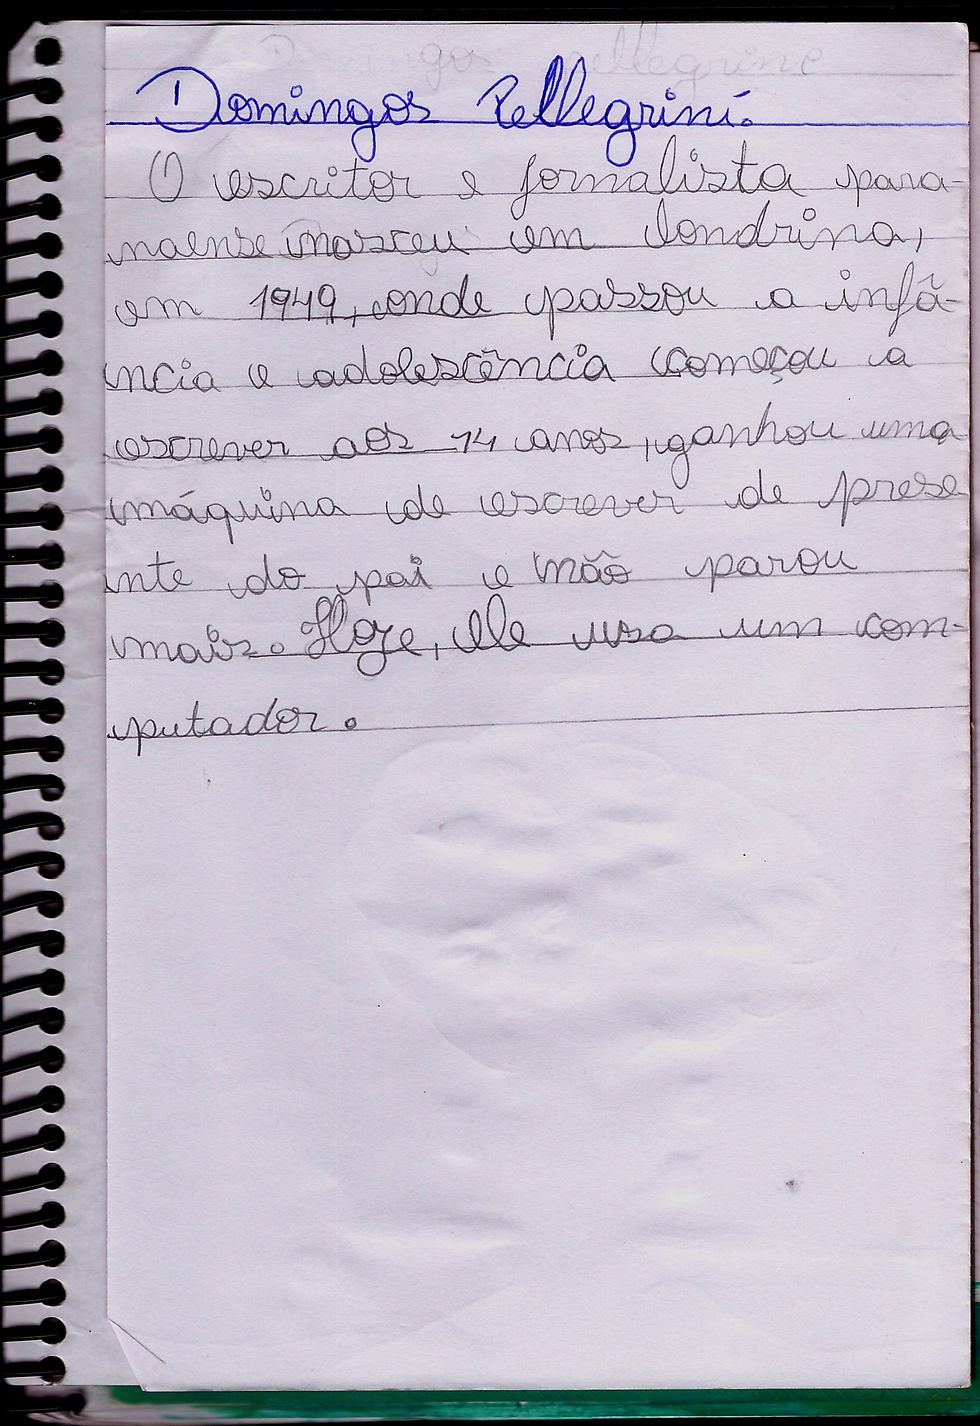 Domingos Pellegrini.
O escritor e jornalista para-
naense nasceu em londrina,
em 1949, onde passou a infâ-
ncia e adolescência começou a
escrever aos 14 anos, ganhou uma
máquina de escrever de prese
nte do pai e não parou
mais. Hoje, ele usa um com-
putador.